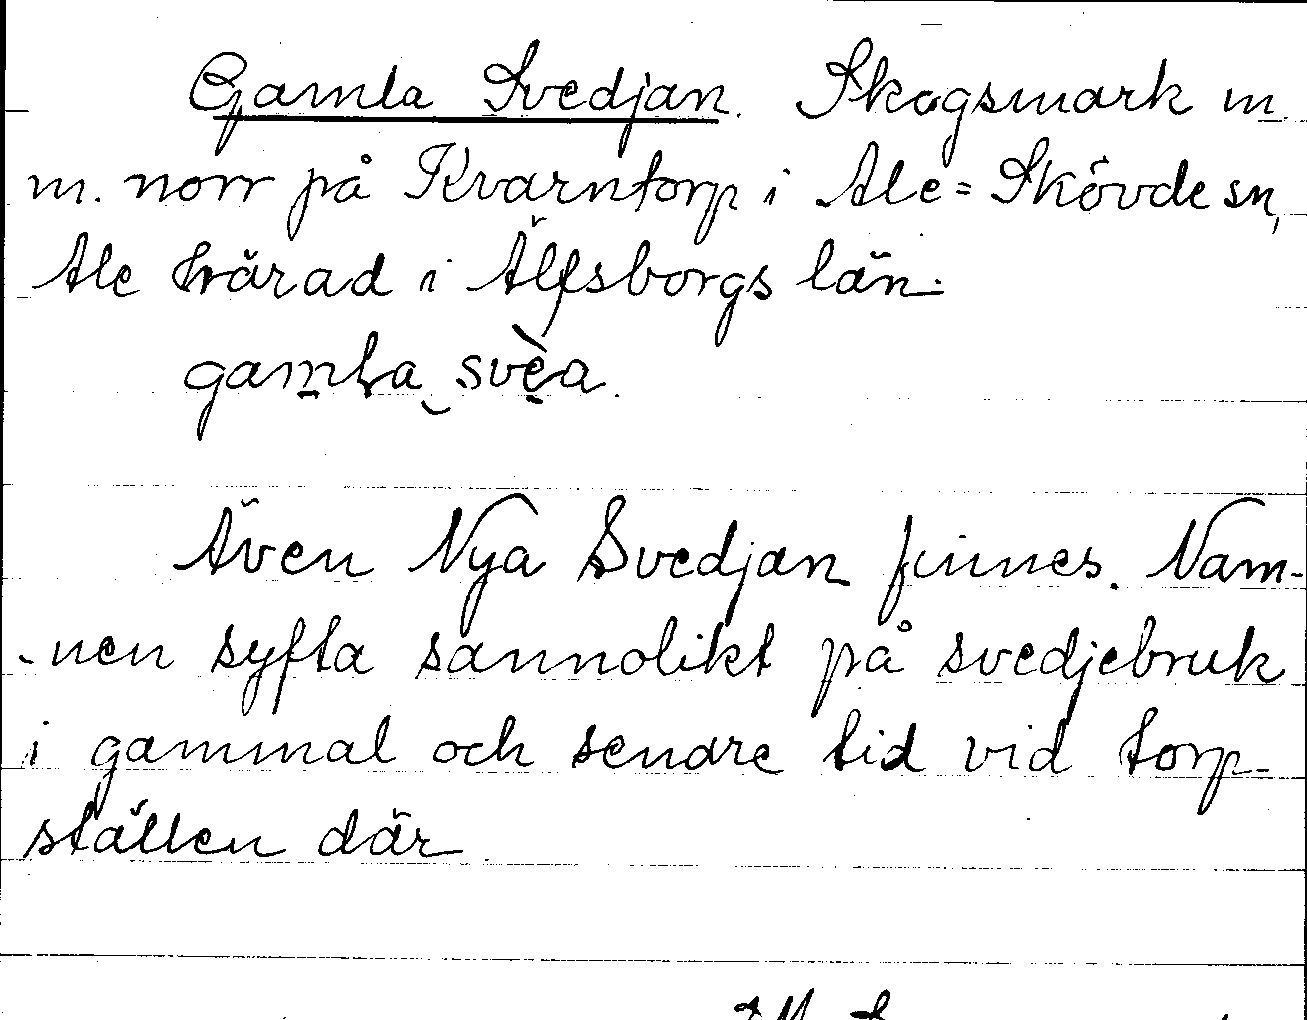 Gamla Svedjan. Skogsmark m
m. norr på Kvarntorp i Ale=Skövde sn,
Ale härad i Älfsborgs län.
gamla svèa.
Även Nya Svedjan finnes. Nam-
-nen syfta sannolikt på svedjebruk
i gammal och senare tid vid torp-
ställen där